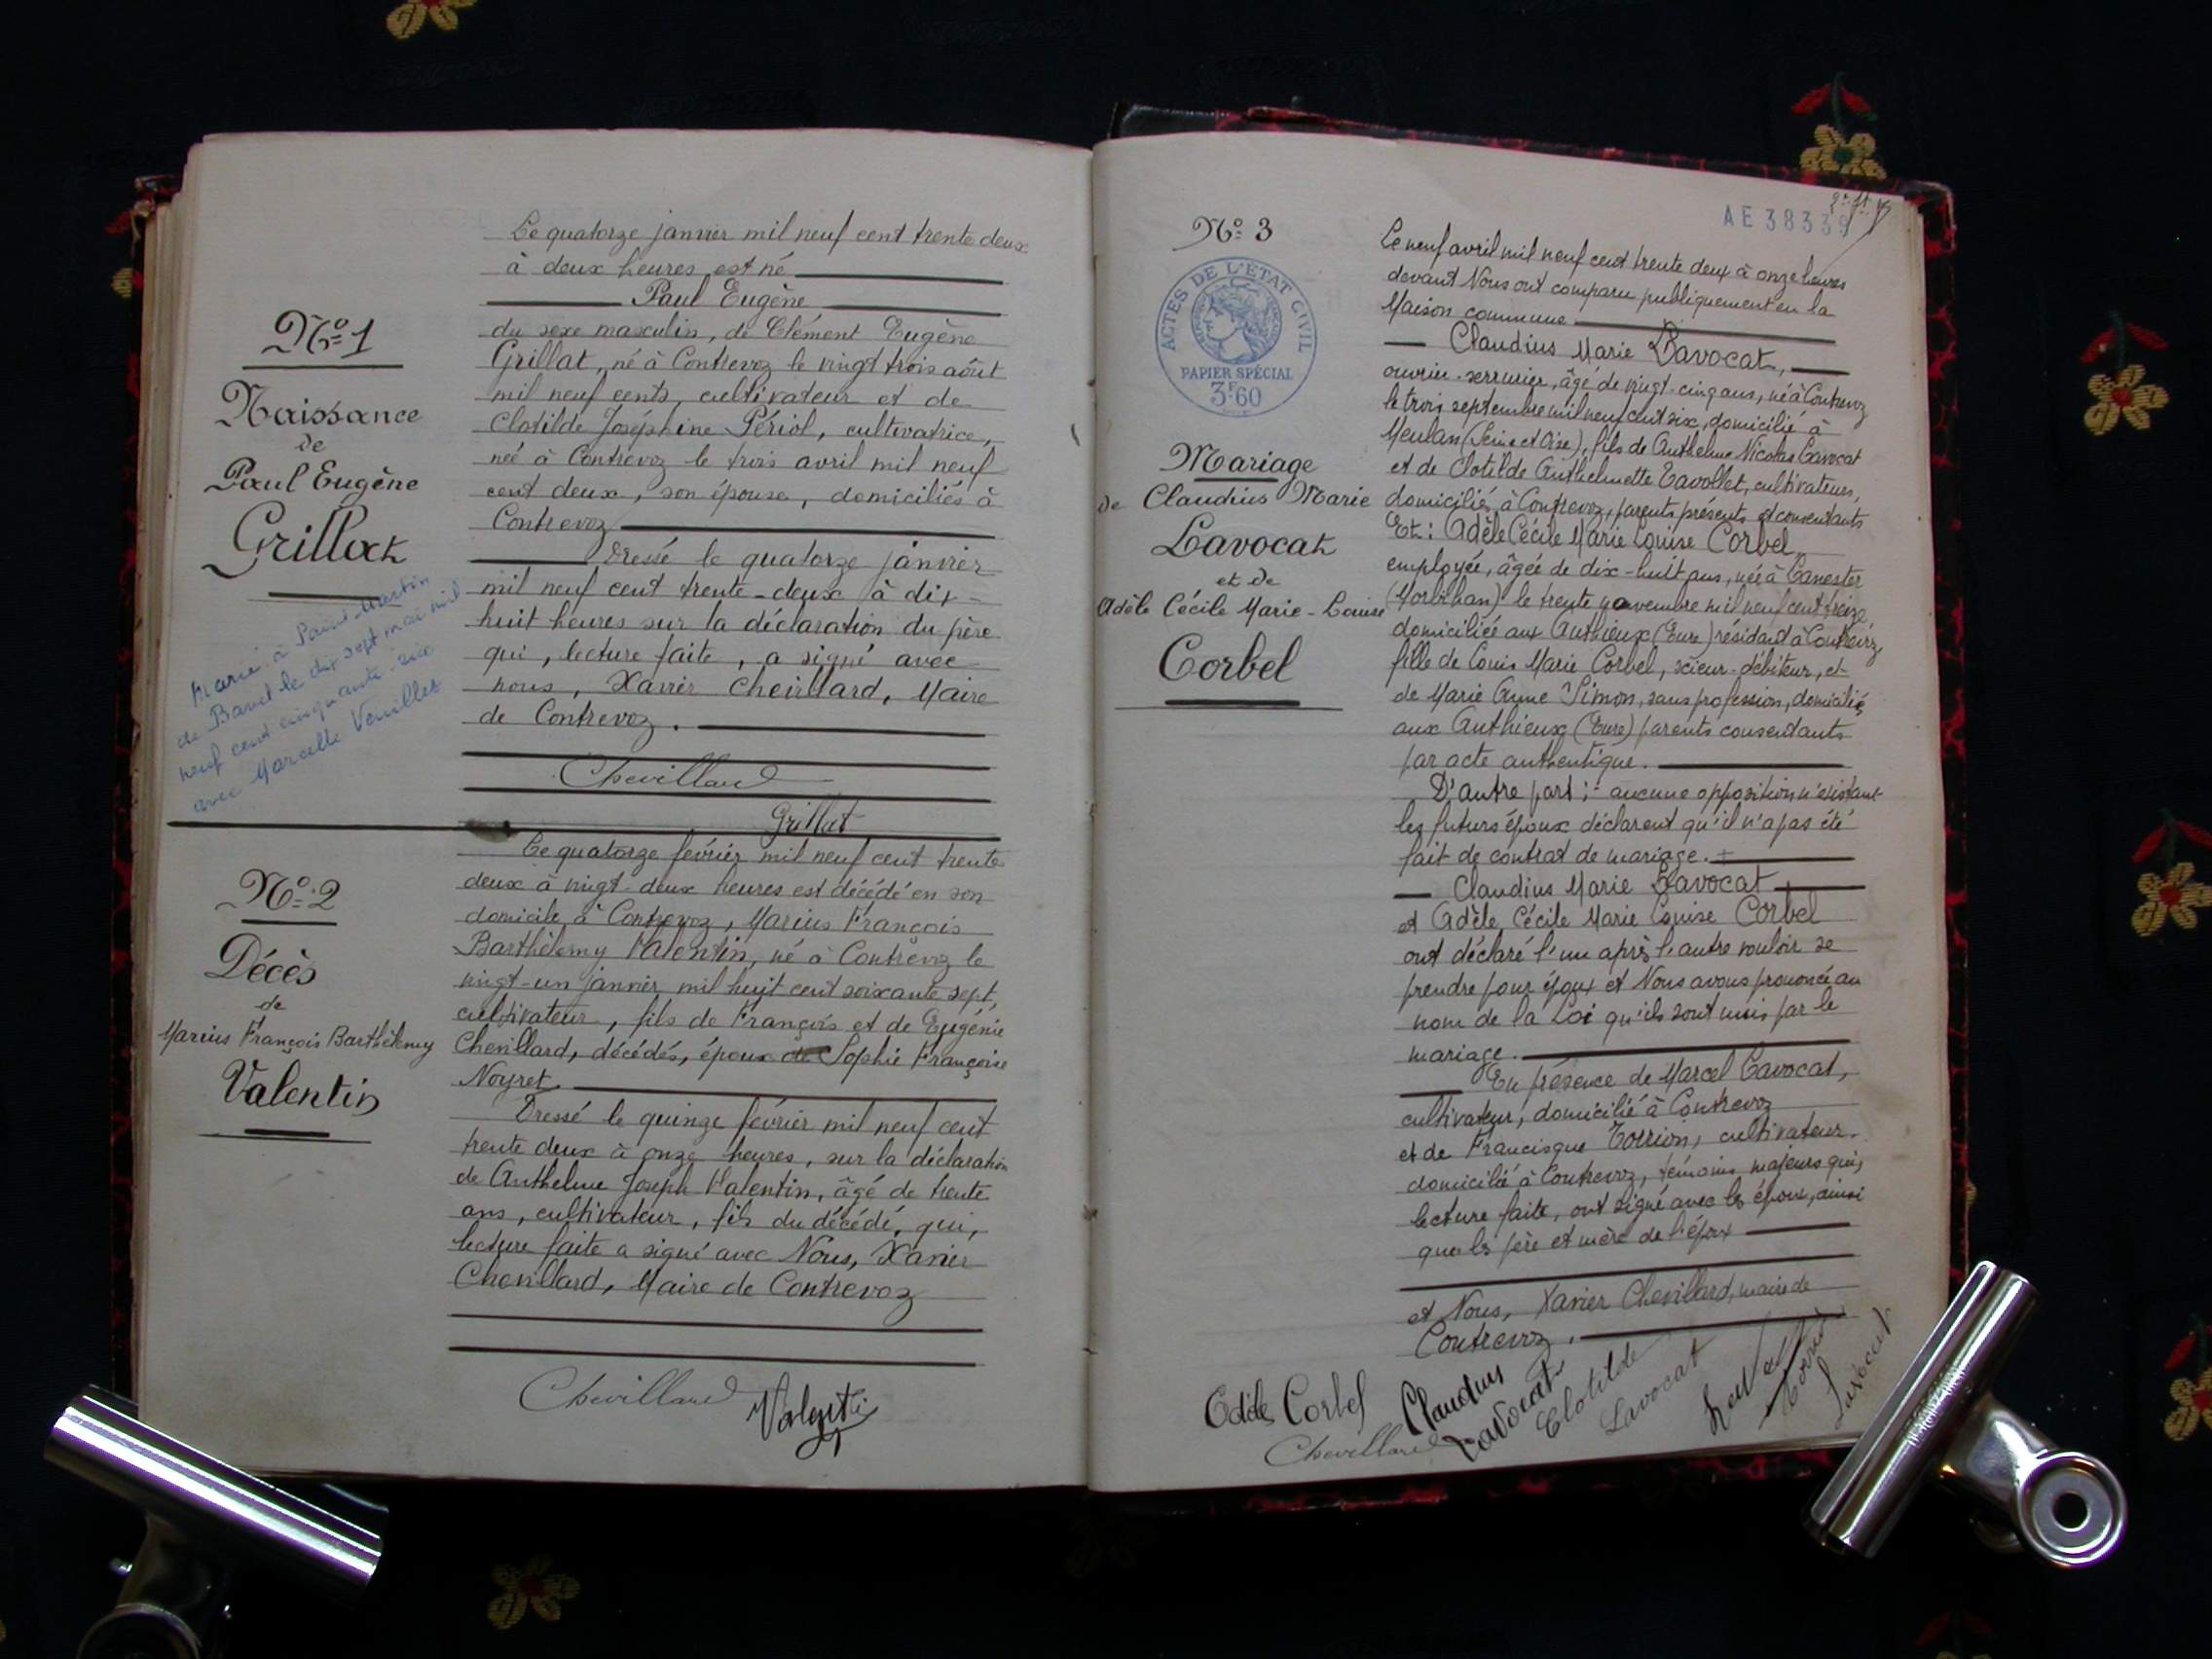 Le quatorze janvier mil neuf cent trente deux
à deux heures est né
Paul Eugène
du sexe masculin, de Clément Eugène
Grillat, né à Contrevoz le vingt trois août
mil neuf cents, cultivateur et de
Clotilde Joséphine Périol, cultivatrice,
née à Contrevoz le trois avril mil neuf
cent deux, son épouse, domiciliés à
Contrevoz
Dressé le quatorze janvier
mil neuf cent trente-deux à dix-
huit heures sur la déclaration du père
qui, lecture faite, a signé avec
nous, Xavier Chevillard, Maire
de Contrevoz.
Chevillard
Grillat
No 1
Naissance
de
Paul Eugène
Grillat
Marié à Saint Martin
de Bavel le dix sept mai mil
neuf cent cinquante-six
avec Marcelle
Le quatorze février mil neuf cent trente
deux à vingt-deux heures est décédé en son
domicile à Contrevoz, Marius François
Barthèlemy Valentin, né à Contrevoz le
vingt-un janvier mil huit cent soixante sept,
cultivateur, fils de François et de Eugénie
Chevillard, décédés, époux de Sophie Françoise
Noyret.
Dressé le quinze février mil neuf cent
trente deux à onze heures, sur la déclaration
de Anthelme Joseph Valentin, âgé de trente
ans, cultivateur, fils du décédé, qui,
lecture faite a signé avec Nous, Xavier
Chevillard, Maire de Contrevoz
Chevillard Valentin
No 2
Décès
de
Marius François Barthèlemy
Valentin
No 3
ACTES DE L'ÉTAT CIVIL
PAPIER SPÉCIAL
3F60
Mariage
de Claudius Marie
Lavocat
et de
Adèle Cécile Marie-Louise
Corbel
AE 38339
Le neuf avril mil neuf cent trente deux à onze heures
devant Nous ont comparu publiquement en la
Maison commune
Claudius Marie Lavocat,
ouvrier-serrurier, âgé de vingt-cinq ans, né à Contrevoz
le trois septembre mil neuf cent six, domicilié à
Meulan (Seine et Oise), fils de Anthelme Nicolas Lavocat
et de Clotilde Anthelmette Tavollet, cultivateurs,
domiciliés à Contrevoz, parents présents et consentants
Et: Adèle Cécile Marie Louise Corbel,
employée, âgée de dix-huit ans, née à Lanester
(Morbihan) le trente novembre mil neuf cent treize,
domiciliée aux Authieux (Eure) résidant à Contrevoz
fille de Louis Marie Corbel, scieur-débiteur, et
de Marie Anne Simon, sans profession, domiciliés
aux Authieux (Eure) parents consentants
par acte authentique.
D'autre part; aucune opposition n'existant
les futurs époux déclarent qu'il n'a pas été
fait de contrat de mariage.
Claudius Marie Lavocat
et Adèle Cécile Marie Louise Corbel
ont déclaré l'un après l'autre vouloir se
prendre pour époux et Nous avons prononcé au
nom de la Loi qu'ils sont unis par le
mariage.
En présence de Marcel Lavocat,
cultivateur, domicilié à Contrevoz
et de Francisque Torrion, cultivateur
domicilié à Contrevoz, témoins majeurs qui,
lecture faite, ont signé avec les époux, ainsi
que les père et mère de l'époux
et Nous, Xavier Chevillard, maire de
Contrevoz.
Adèle Corbel
Claudius Lavocat
Clotilde Lavocat
Torrion
Lavocat
Chevillard